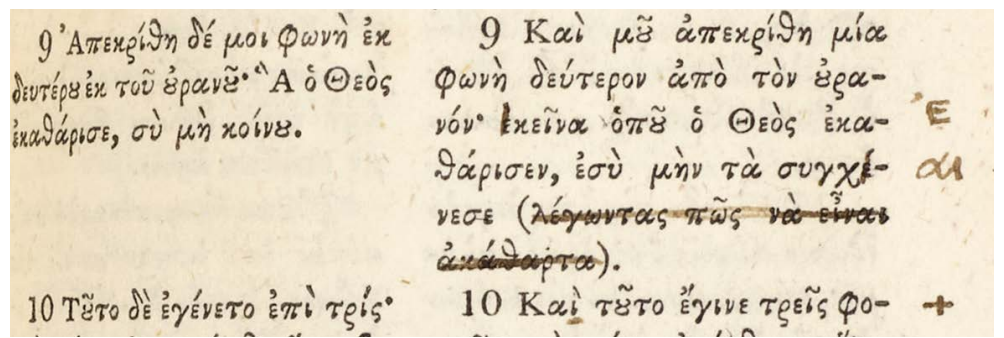 9 Ἀπεκρίθη δέ μοι φωνὴ ἐκ
δευτέρȣ ἐκ τοῦ ȣ̓ρανȣ͂· Ἃ ὁ Θεὸς
ἐκαθάρισε, σὺ μὴ κοίνȣ.
10 Τȣ͂το δὲ ἐγένετο ἐπὶ τρίς·
9 Καὶ μȣ͂ ἀπεκρίθη μία
φωνὴ δεύτερον ἀπὸ τὸν ȣ̓ρα-
νόν· ἐκεῖνα ὁπȣ͂ ὁ Θεὸς ἐκα-
θάρισεν, ἐσὺ μὴν τὰ συγχέ-
νεσε (λέγωντας πῶς νὰ εἶναι
ἀκάθαρτα).
10 Καὶ τȣ͂το ἔγινε τρεῖς φο-
Ἐ
αι
+